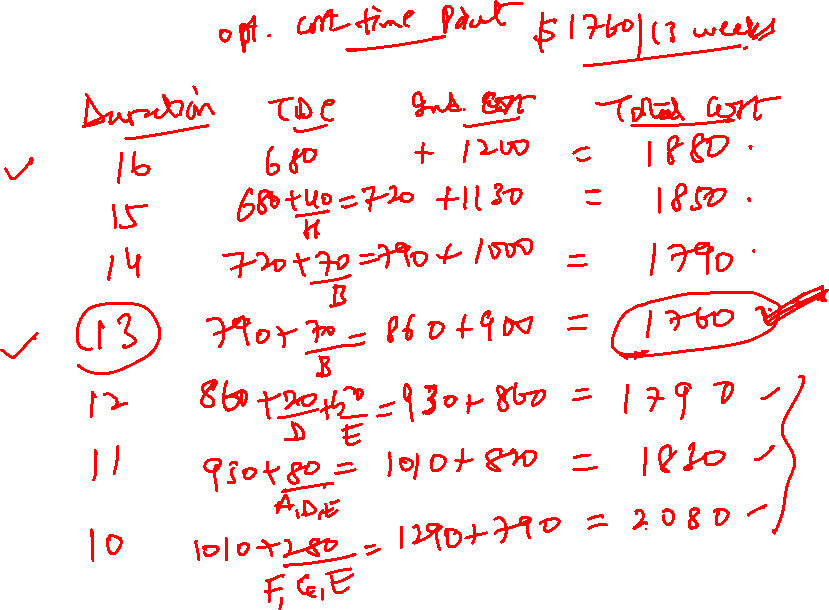 opt. cost-time point $1760/13 weeks
Duration TDC Ind. cost Total cost
16 680 + 1200 = 1880.
15 680+40/H = 720 + 1130 = 1850.
14 720+70/B = 790 + 1000 = 1790.
13 790+70/B = 860 + 900 = 1760
12 860+20/D+50/E = 930 + 860 = 1790
11 930+80/A,D,E = 1010 + 820 = 1830
10 1010+280/F,G,E = 1290 + 790 = 2080